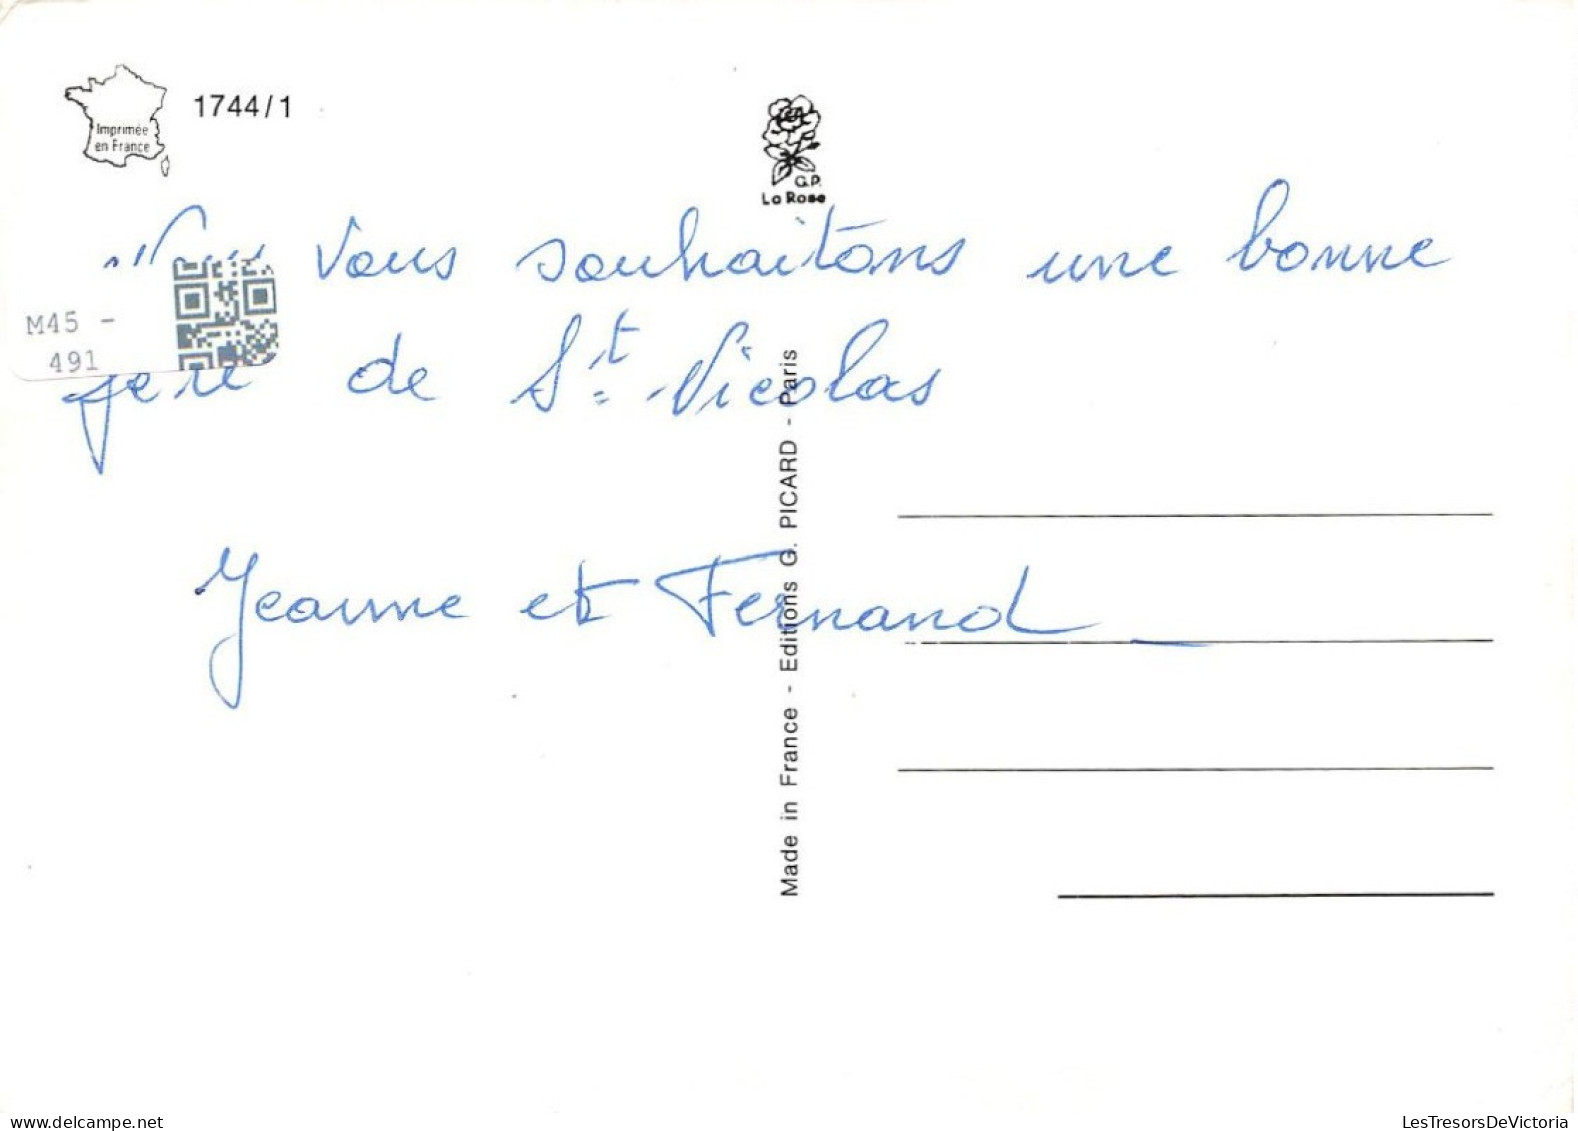 Imprimée
en France
1744/1
G.P.
La Rose
Nous vous souhaitons une bonne
M45 -
491
fête de St Nicolas
Jeanne et Fernand
Made in France - Editions G. PICARD - Paris
delcampe.net
LesTresorsDeVictoria